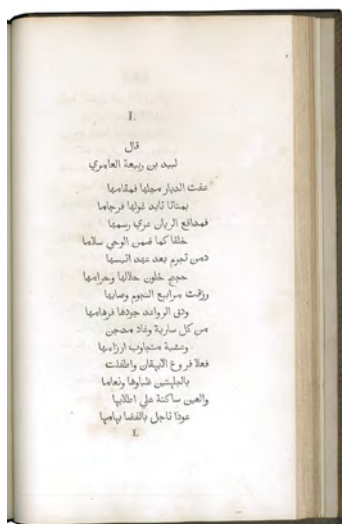 I.
قال
لبيد بن ربيعة العامري
عفت الديار محلها فمقامها
بمناتا تابد غولها فرجاما
فمدافع الريان عري رسمها
خلقا كما ضمن الوحي سلاما
دمن تجرم بعد عهد انيسها
حجج خلون حلالها وحرامها
رزقت مرابيع النجوم وصابها
ودق الرواعد جودها فرهامها
من كل سارية وغاد مدجن
وعشية متجاوب ارزامها
فعلا فروع الايهقان واطفلت
بالجلهتين ظباوها ونعاما
والعين ساكنة علي اطلايها
عوذا تاجل بالفضا بهامها
I.